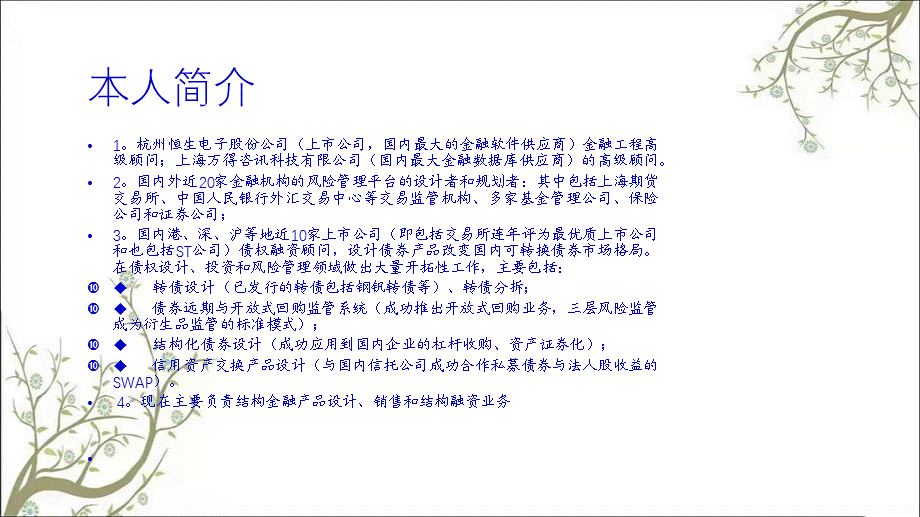 本人简介
• 1。杭州恒生电子股份公司（上市公司，国内最大的金融软件供应商）金融工程高
级顾问；上海万得咨讯科技有限公司（国内最大金融数据库供应商）的高级顾问。
• 2。国内外近20家金融机构的风险管理平台的设计者和规划者：其中包括上海期货
交易所、中国人民银行外汇交易中心等交易监管机构、多家基金管理公司、保险
公司和证券公司；
• 3。国内港、深、沪等地近10家上市公司（即包括交易所连年评为最优质上市公司
和也包括ST公司）债权融资顾问，设计债券产品改变国内可转换债券市场格局。
在债权设计、投资和风险管理领域做出大量开拓性工作，主要包括：
❿ ◆ 转债设计（已发行的转债包括钢钒转债等）、转债分拆；
❿ ◆ 债券远期与开放式回购监管系统（成功推出开放式回购业务，三层风险监管
成为衍生品监管的标准模式）；
❿ ◆ 结构化债券设计（成功应用到国内企业的杠杆收购、资产证券化）；
❿ ◆ 信用资产交换产品设计（与国内信托公司成功合作私募债券与法人股收益的
SWAP）。
• 4。现在主要负责结构金融产品设计、销售和结构融资业务
•